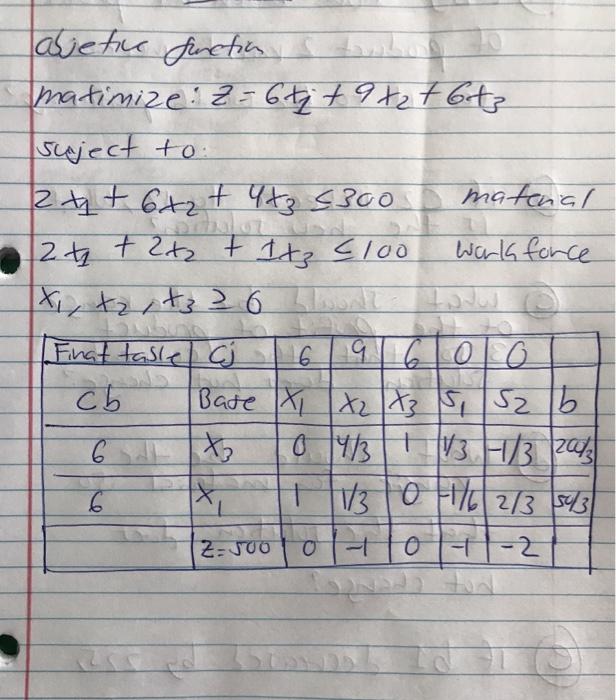 objetive function
maximize: Z = 6x1 + 9x2 + 6x3
suject to:
2x1 + 6x2 + 4x3 ≤ 300 material
2x1 + 2x2 + 1x3 ≤ 100 workforce
x1, x2, x3 ≥ 0
Final table Cj 6 9 6 0 0
Cb Base x1 x2 x3 S1 S2 b
6 x3 0 4/3 1 1/3 -1/3 200/3
6 x1 1 1/3 0 -1/6 2/3 50/3
Z=500 0 -1 0 -1 -2